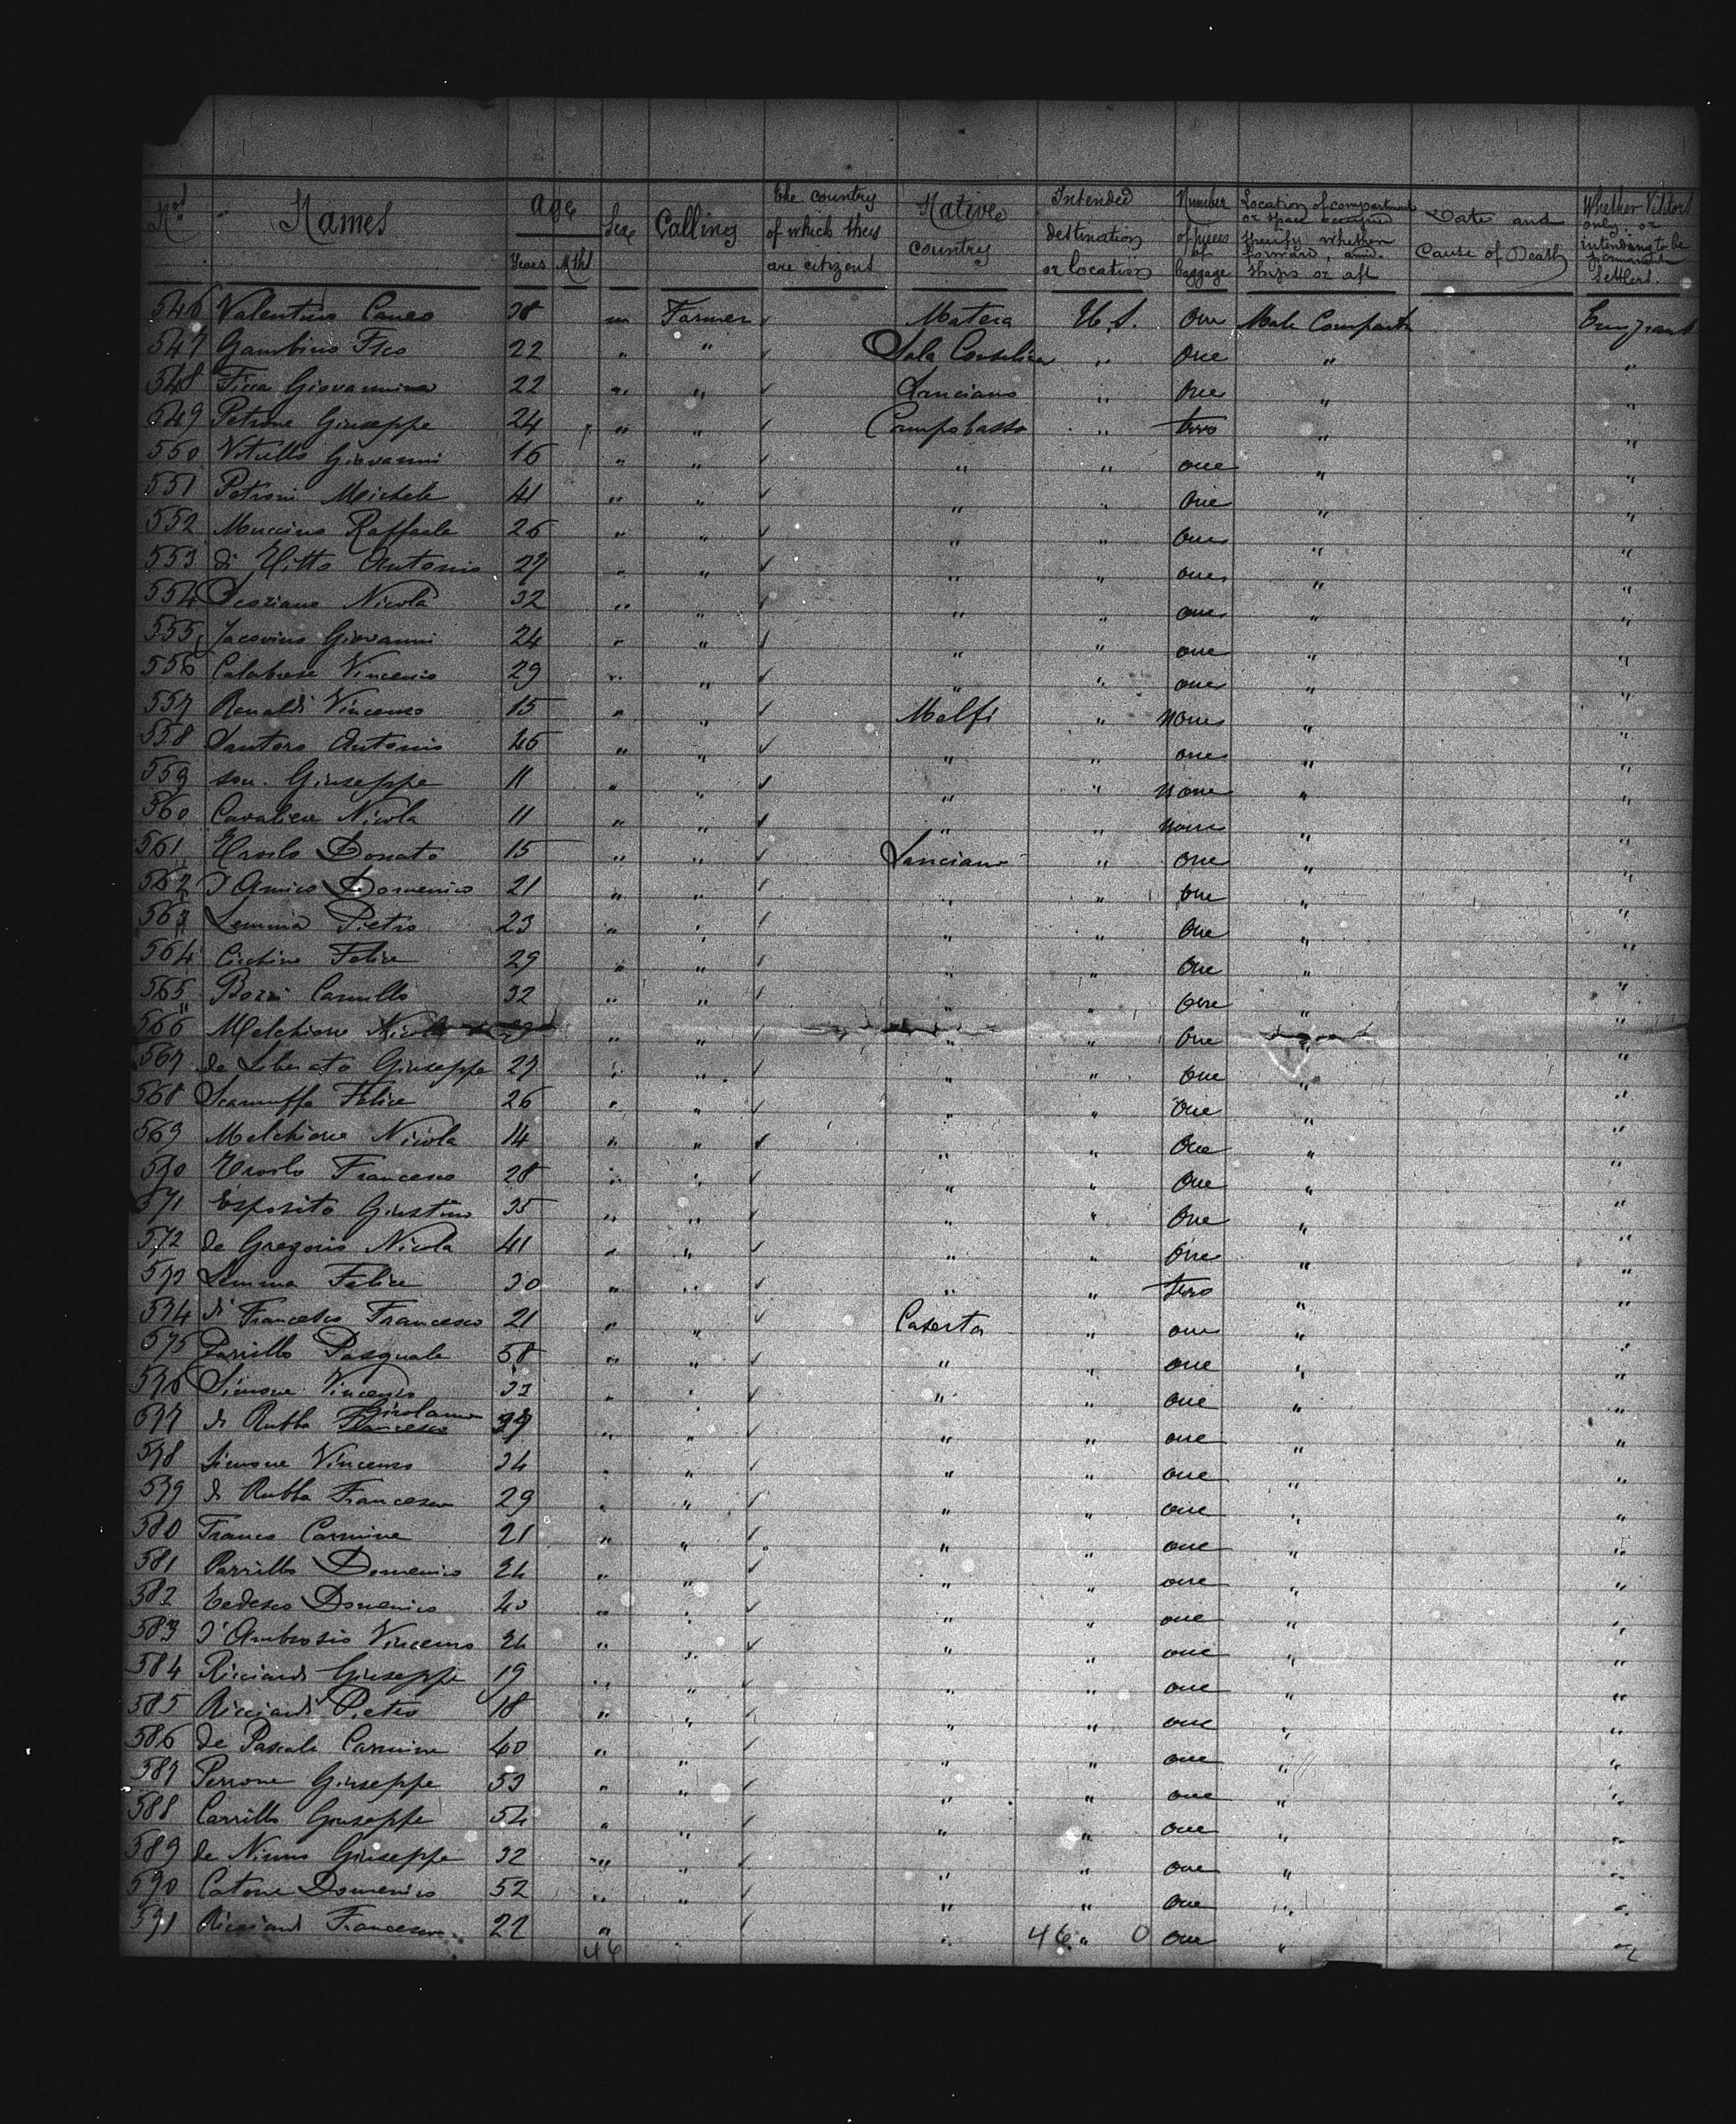 Nos Names Age Years Mths Sex Calling The country of which they are citizens Native country Intended destination or location Number of pieces of baggage Location of compartment or space occupied specify whether forward, amid-ships or aft Date and Cause of Death Whether Visitors only or intending to be permanent Settlers.
546 Valentino Caneo 38 m Farmer ✓ Matera U.S. One Male Emigrant
547 Gambino Fsco 22 " " ✓ Sala Consilina " One " "
548 Ficca Giovannina 22 " " ✓ Lanciano " One " "
549 Petrone Giuseppe 24 " " ✓ Campobasso " two " "
550 Vitullo Giovanni 16 " " ✓ " " one " "
551 Petroni Michele 41 " " ✓ " " One " "
552 Muccino Raffaele 26 " " ✓ " " One " "
553 di Antonio 27 " " ✓ " " one " "
554 Nicola 32 " " ✓ " " one " "
555 Jacovino Giovanni 24 " " ✓ " " one " "
556 Calabrese Vincenzo 29 " " ✓ " " one " "
557 Renaldi Vincenzo 15 " " ✓ Melfi " none " "
558 Santoro Antonio 46 " " ✓ " " one " "
559 son. Giuseppe 11 " " ✓ " " none " "
560 Cavaliere Nicola 11 " " ✓ " " none " "
561 Donato 15 " " ✓ Lanciano " one " "
562 D'Amico Domenico 21 " " ✓ " " one " "
563 Lemma Pietro 23 " " ✓ " " One " "
564 Cicchino Felice 29 " " ✓ " " One " "
565 Bozzi Carmillo 32 " " ✓ " " One " "
566 Melchiorre Nicola " " ✓ " " One " "
567 de Liberato Giuseppe 27 " " ✓ " " One " "
568 Scamuffa Felice 26 " " ✓ " " One " "
569 Melchiorre Nicola 14 " " ✓ " " One " "
570 Francesco 28 " " ✓ " " One " "
571 Esposito Giustino 35 " " ✓ " " One " "
572 de Gregorio Nicola 41 " " ✓ " " One " "
573 Lemma Felice 30 " " ✓ " " two " "
574 di Francesco Francesco 21 " " ✓ Caserta " one " "
575 Parrillo Pasquale 58 " " ✓ " " one " "
576 Simone Vincenzo 33 " " ✓ " " one " "
577 di Rubba Francesco Girolamo " " ✓ " " one " "
578 Simone Vincenzo 34 " " ✓ " " one " "
579 di Rubba Francesco 29 " " ✓ " " one " "
580 Franco Carmine 21 " " ✓ " " one " "
581 Parrillo Domenico 24 " " ✓ " " one " "
582 Tedesco Domenico 40 " " ✓ " " one " "
583 D'Ambrosio Vincenzo 24 " " ✓ " " one " "
584 Ricciardi Giuseppe 19 " " ✓ " " one " "
585 Ricciardi Pietro 18 " " ✓ " " one " "
586 de Pascale Carmine 40 " " ✓ " " one " "
587 Perrone Giuseppe 53 " " ✓ " " one " "
588 Carrillo Giuseppe 54 " " ✓ " " one " "
589 de Ninno Giuseppe 32 " " ✓ " " one " "
590 Catone Domenico 52 " " ✓ " " one " "
591 Ricciardi Francesco 22 " " ✓ " " one " "
46 46 0